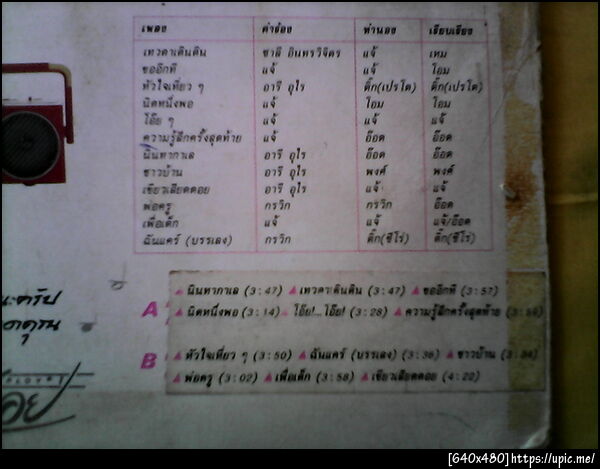 เพลง คำร้อง ทำนอง เรียบเรียง
เทวดาเดินดิน ชาลี อินทรวิจิตร แจ้ เทม
ขออีกที แจ้ แจ้ โอม
หัวใจเหี่ยว ๆ อารี อุไร ติ๊ก(เปรโต) ติ๊ก(เปรโต)
นิดหนึ่งพอ แจ้ โอม โอม
โอ๊ย ๆ แจ้ แจ้ แจ้
ความรู้สึกครั้งสุดท้าย แจ้ อ๊อด อ๊อด
นินทากาเล อารี อุไร อ๊อด อ๊อด
ชาวบ้าน อารี อุไร พงศ์ พงศ์
เขียวเสียดดอย อารี อุไร แจ้ แจ้
พ่อครู กรวิก กรวิก อ๊อด
เพื่อเด็ก แจ้ แจ้ แจ้/อ๊อด
ฉันแคร์ (บรรเลง) กรวิก ติ๊ก(ชีโร่) ติ๊ก(ชีโร่)
A
▲ นินทากาเล (3:47) ▲ เทวดาเดินดิน (3:47) ▲ ขออีกที (3:57)
▲ นิดหนึ่งพอ (3:14) ▲ โอ๊ย!...โอ๊ย! (3:28) ▲ ความรู้สึกครั้งสุดท้าย (3:59)
B
▲ หัวใจเหี่ยว ๆ (3:50) ▲ ฉันแคร์ (บรรเลง) (3:36) ▲ ชาวบ้าน (3:34)
▲ พ่อครู (3:02) ▲ เพื่อเด็ก (3:58) ▲ เขียวเสียดดอย (4:22)
[640x480]https://upic.me/